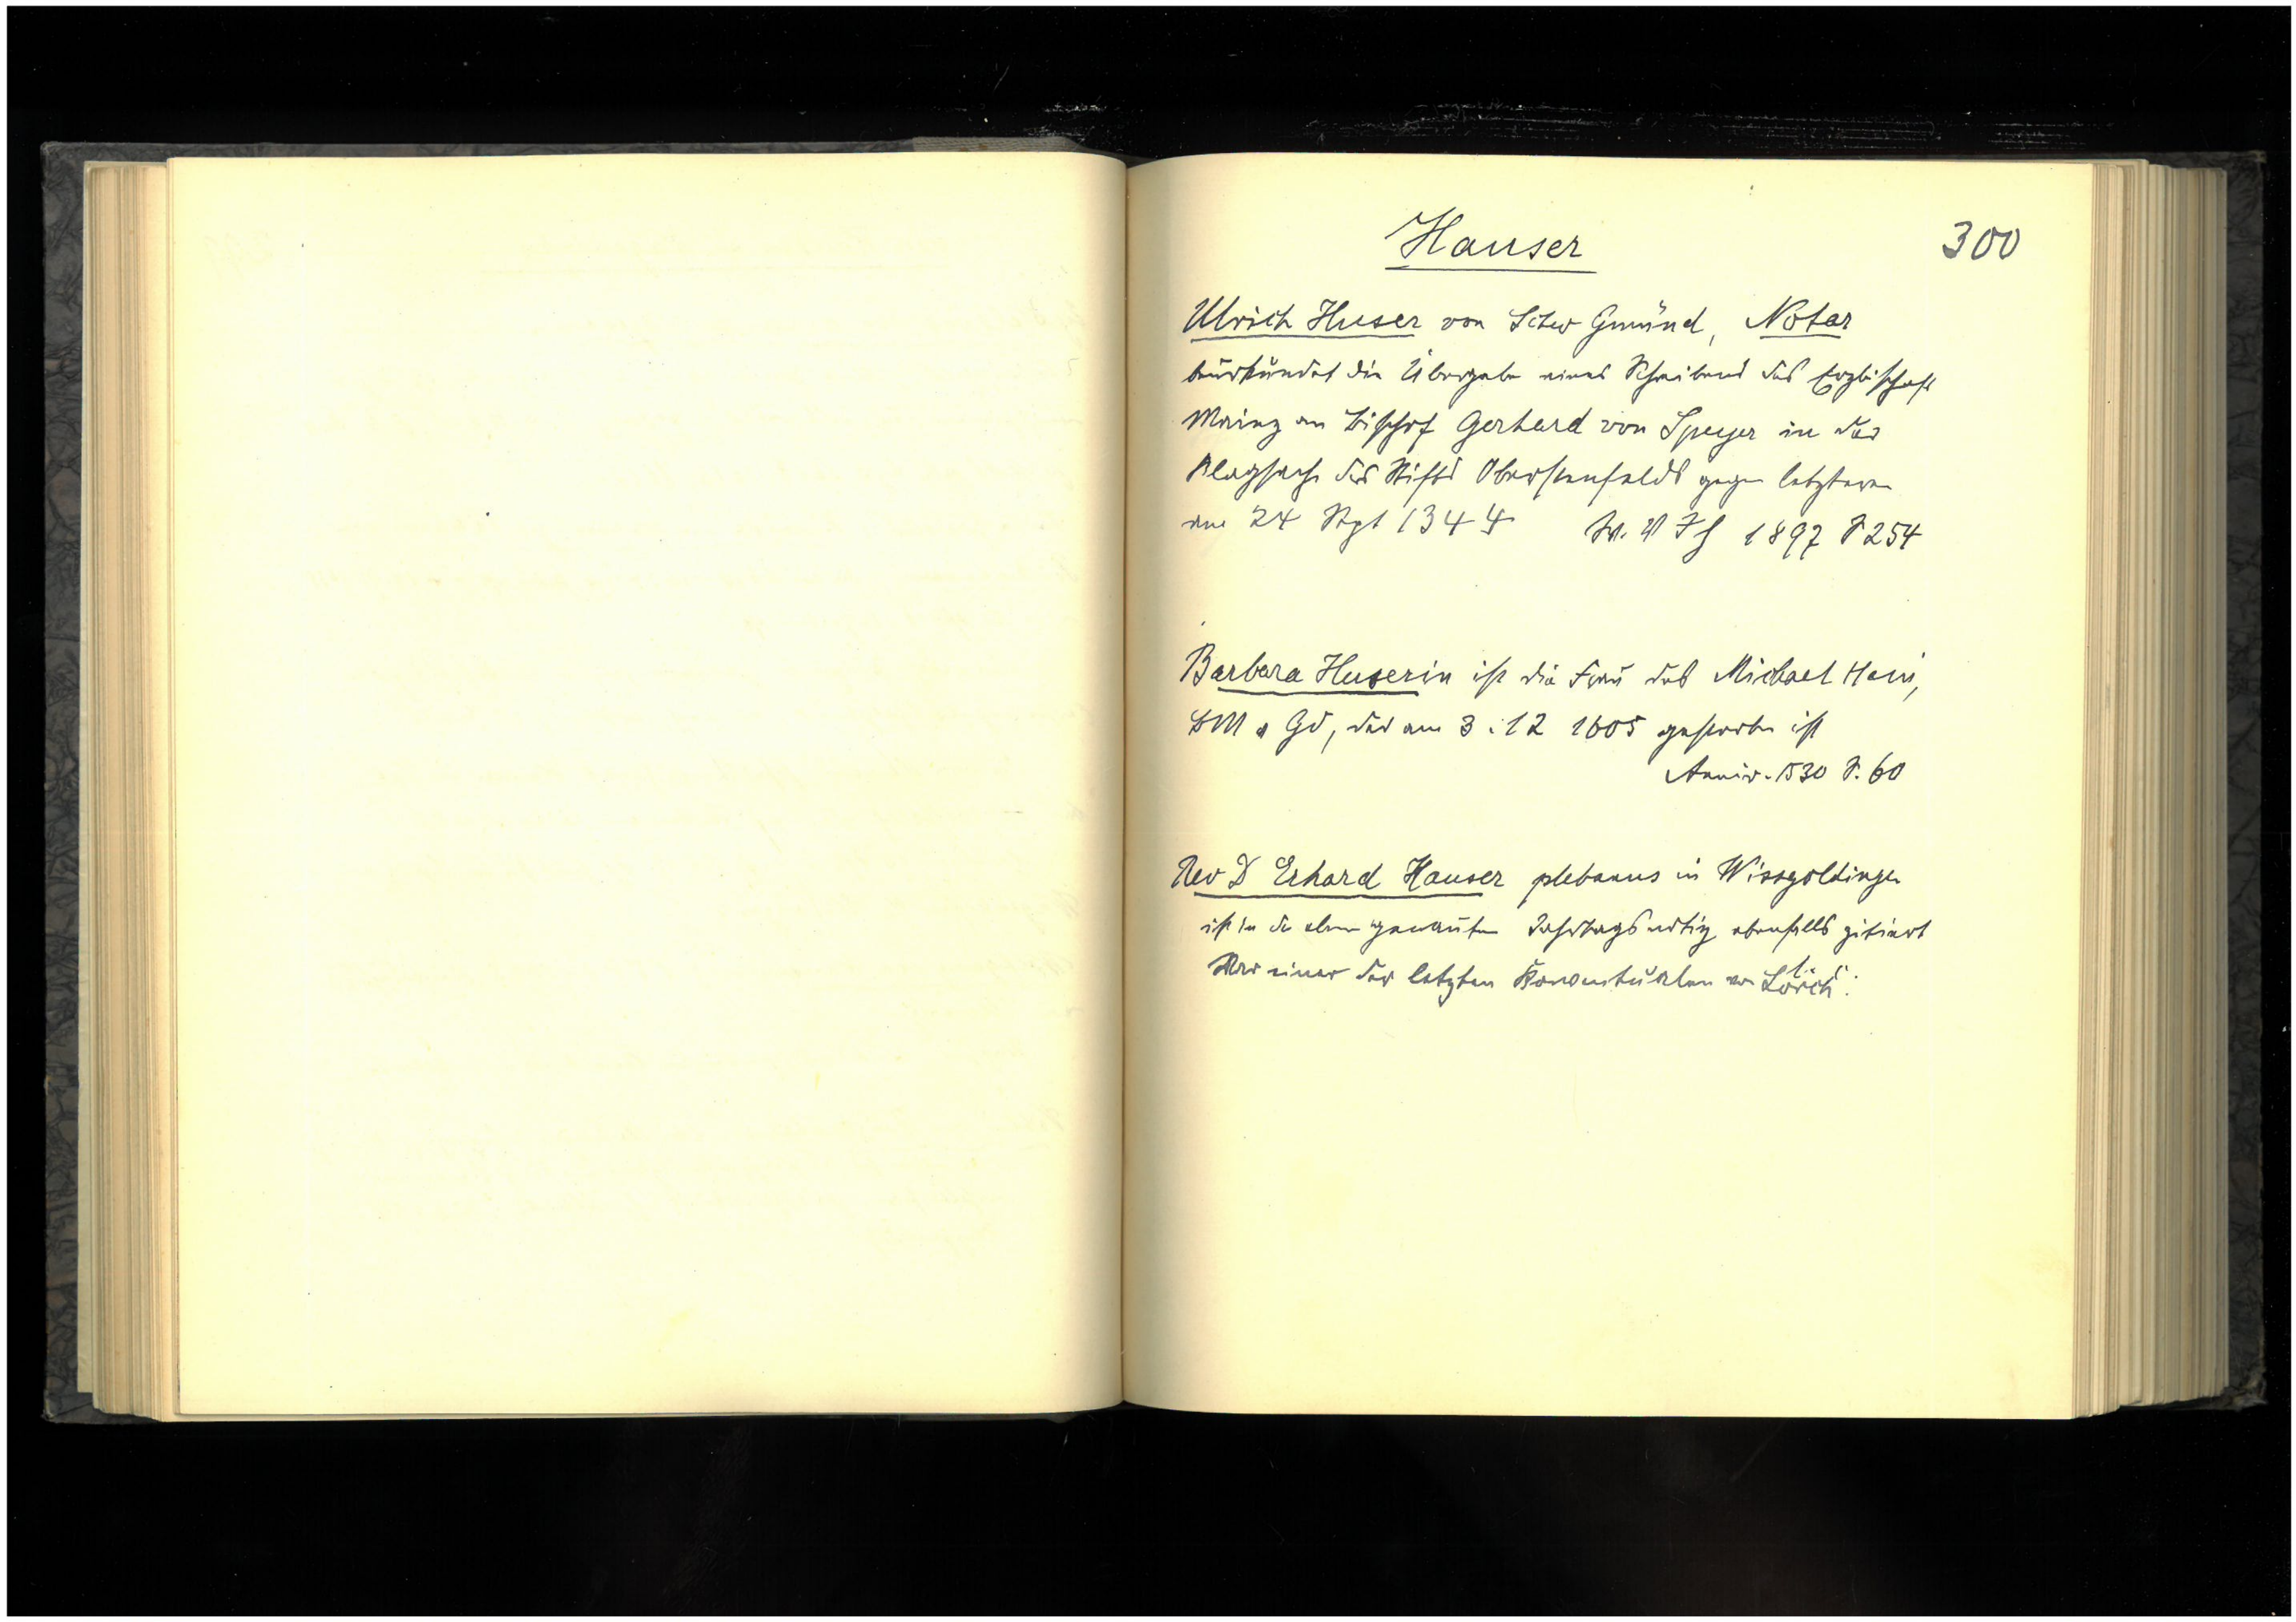 Hauser
300
Ulrich Huser von Schw Gmünd, Notar
beurkundet die Übergabe eines Schreibens des Erzbischofs
Mainz an Bischof Gerhard von Speyer in der
Klagsache des Stifts Oberstenfelds gegen letzteren
am 24 Sept 1344 W. V J H 1897 S 254
Barbara Huserin ist die Frau des Michael
BM Gd, der am 3. 12 1605 gestorben ist
Anniv. 1530 S. 60
Rev D Erhard Hauser plebanus in Wissgoldingen
ist in der oben genannten Jahrtagsnotiz ebenfalls zitiert
War einer der letzten Konventualen von Lorch.